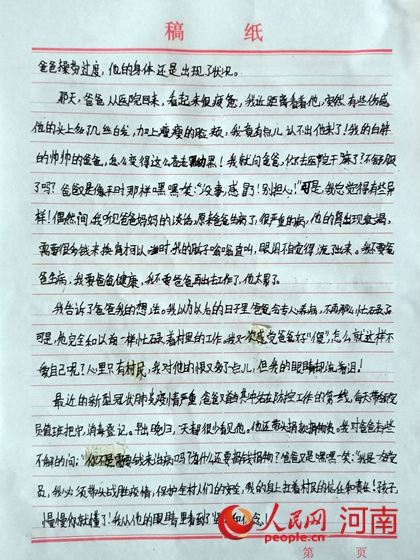 稿 纸
爸爸操劳过度，他的身体还是出现了状况。
那天，爸爸从医院回来，看起来很疲惫，我近距离看看他，突然有些伤感
他的头上多了几丝白发，加上瘦瘦的脸颊，我竟有点儿认不出他来了！我的白胖
的帅帅的爸爸，怎么变得这么苍老黑！我就问爸爸，你去医院干嘛了？不舒服
了吗？爸爸像平时那样嘿嘿一笑："没事，感冒了！别担心！"可是，我总觉得有些异
样！偶然间，我听见爸爸妈妈的谈话，原来爸爸生病了，很严重的病，他的肾出现衰竭，
需要很多钱来换肾 我的脑子嗡嗡直叫，眼泪不自觉得流了出来。我不要爸
爸生病，我要爸爸健康，我不要爸爸再出去工作了，他太累了。
我告诉了爸爸我的想法。我以为以后的日子里爸爸会专心养病，不再那么忙碌了
可是，他完全和以前一样忙碌着村里的工作。我又感觉爸爸好"傻"，怎么就这样不
爱自己呢？心里只有村民，我对他的恨又多了点儿，但我的眼睛却流着泪！
最近的新型冠状肺炎疫情严重，爸爸又首先冲在防控工作的第一线，每天带领党
员值班把守，消毒登记。早出晚归，天都很少看见他。他还带头捐款捐物资。我对爸爸有些
不解的问："你不是需要钱来治病吗？为什么还要捐钱捐物？"爸爸又是嘿嘿一笑："我是一个党
员，我必须带头战胜疫情，保护全村人们的安全，我的身上扛着村民的信任和责任！孩子，
慢慢你就懂了！我从他的眼睛里看到了坚 和信念。
人民网 河南
people.cn
第 页